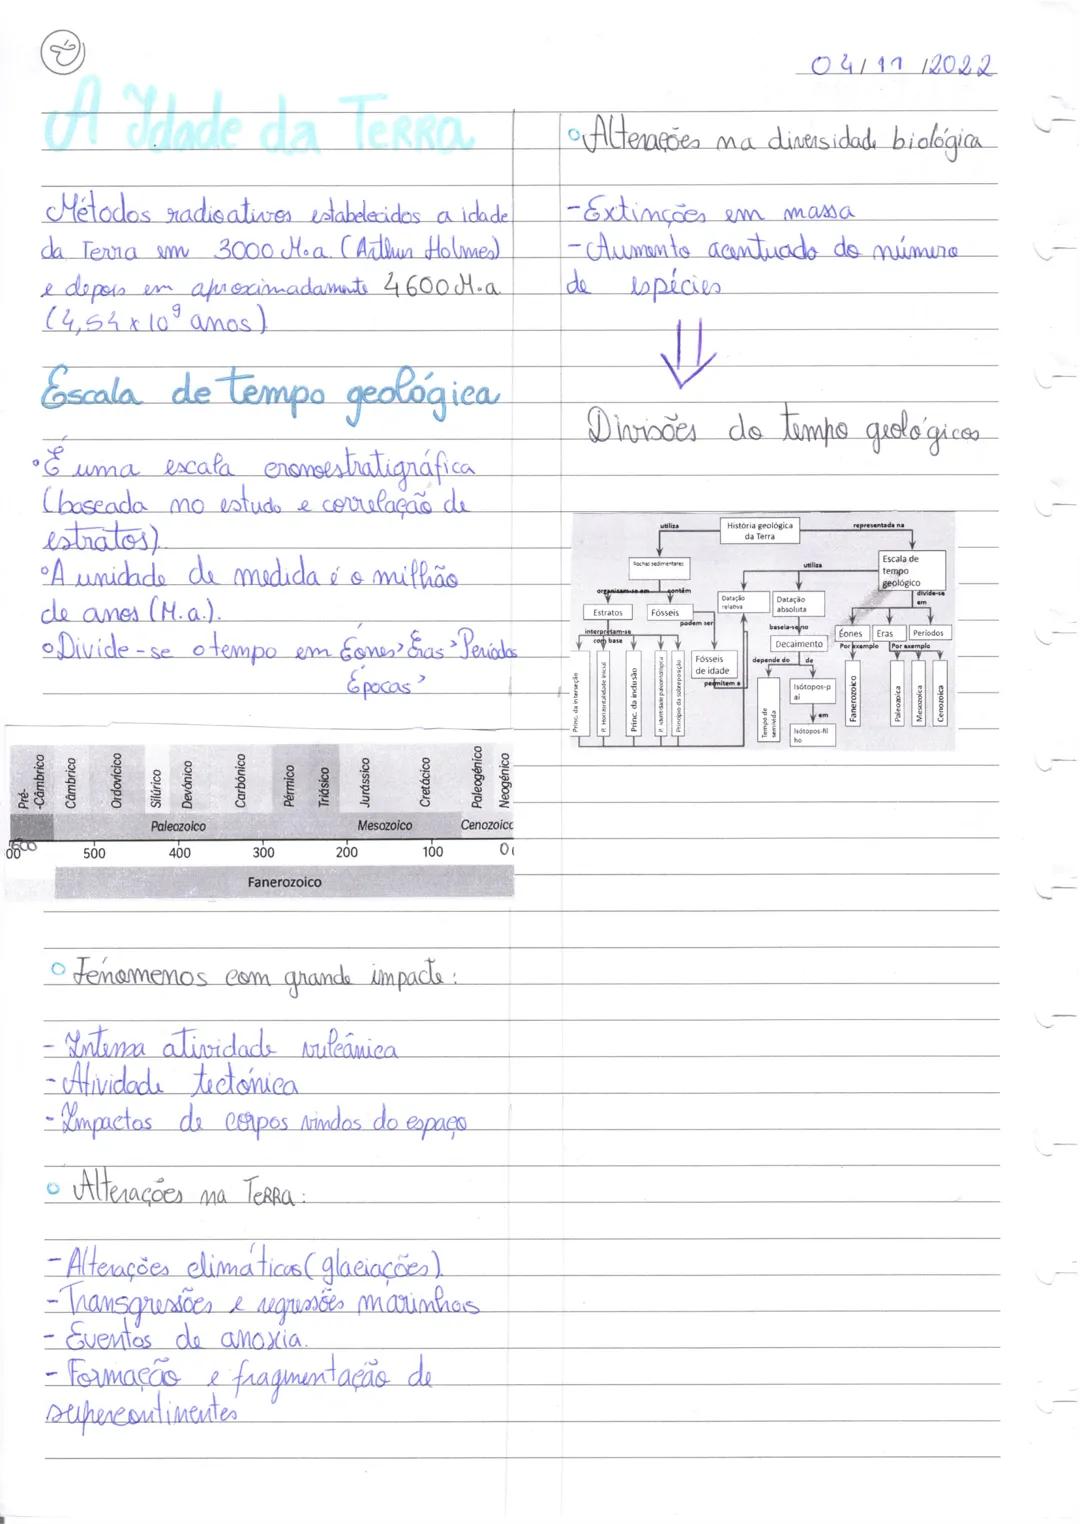 04/11/2022
A Idade da TERRA
Métodos radioativos estabelecidos a idade
da Terra em 3000 M.a. (Arthur Holmes)
e depois em aproximadamente 4600 M.a
(4,54 x 10⁹ anos)
Escala de tempo geológica
•É uma escala cronoestratigráfica
(baseada no estudo e correlação de
estratos).
•A unidade de medida é o milhão
de anos (M.a.).
•Divide-se o tempo em Éones> Eras> Períodos
Épocas>
Pré-
-Câmbrico
Câmbrico
Ordovícico
Silúrico
Devónico
Carbónico
Pérmico
Triásico
Jurássico
Cretácico
Paleogénico
Neogénico
Paleozoico
Mesozoico
Cenozoico
500 400 300 200 100 0
Fanerozoico
• Fenómenos com grande impacte:
- Intensa atividade vulcânica
- Atividade tectónica
- Impactos de corpos vindos do espaço
• Alterações na TERRA:
- Alterações climáticas (glaciações).
- Transgressões e regressões marinhas
- Eventos de anoxia.
- Formação e fragmentação de
supercontinentes
• Alterações na diversidade biológica
- Extinções em massa
- Aumento acentuado do número
de espécies
Divisões do tempo geológicos
História geológica
da Terra
utiliza
representada na
Rochas sedimentares
utiliza
Escala de
tempo
geológico
organizam-se em
contêm
divide-se
em
Estratos
Fósseis
Datação
relativa
Datação
absoluta
podem ser
interpretam-se
com base
baseia-se no
Éones
Eras
Períodos
Decaimento
Por exemplo
Por exemplo
Fósseis
de idade
permitem a
depende do
de
Princ. da interseção
P. Horizontalidade inicial
Princ. da inclusão
P. identidade paleontológica
Princípio da sobreposição
Tempo de
semivida
Isótopos-p
ai
em
Isótopos-fil
ho
Fanerozoico
Paleozoica
Mesozoica
Cenozoica